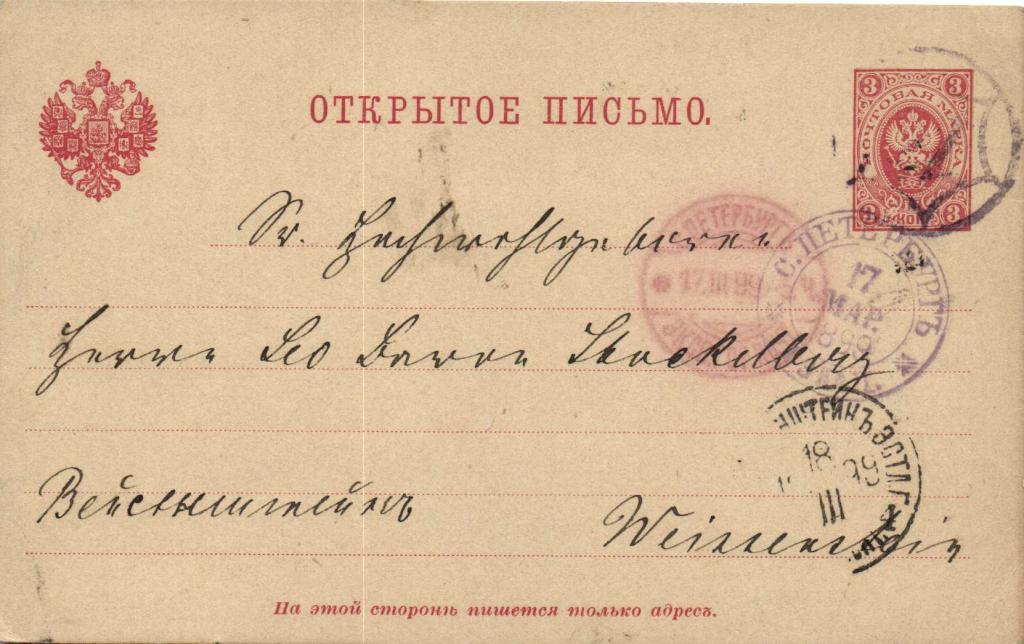 ОТКРЫТОЕ ПИСЬМО.
3 3
ПОЧТОВАЯ МАРКА
3 КОП 3
Sr. Hochwohlgeboren
ПЕТЕРБУРГ
17.III.99
С.ПЕТЕРБУРГЪ
17
МАР.
1899
Herrn Leo Baron Stackelberg
НШТЕЙНЪ ЭСТЛ.Г
18
III
99
Вейсенштейнъ
Weissenstein
На этой сторонѣ пишется только адресъ.